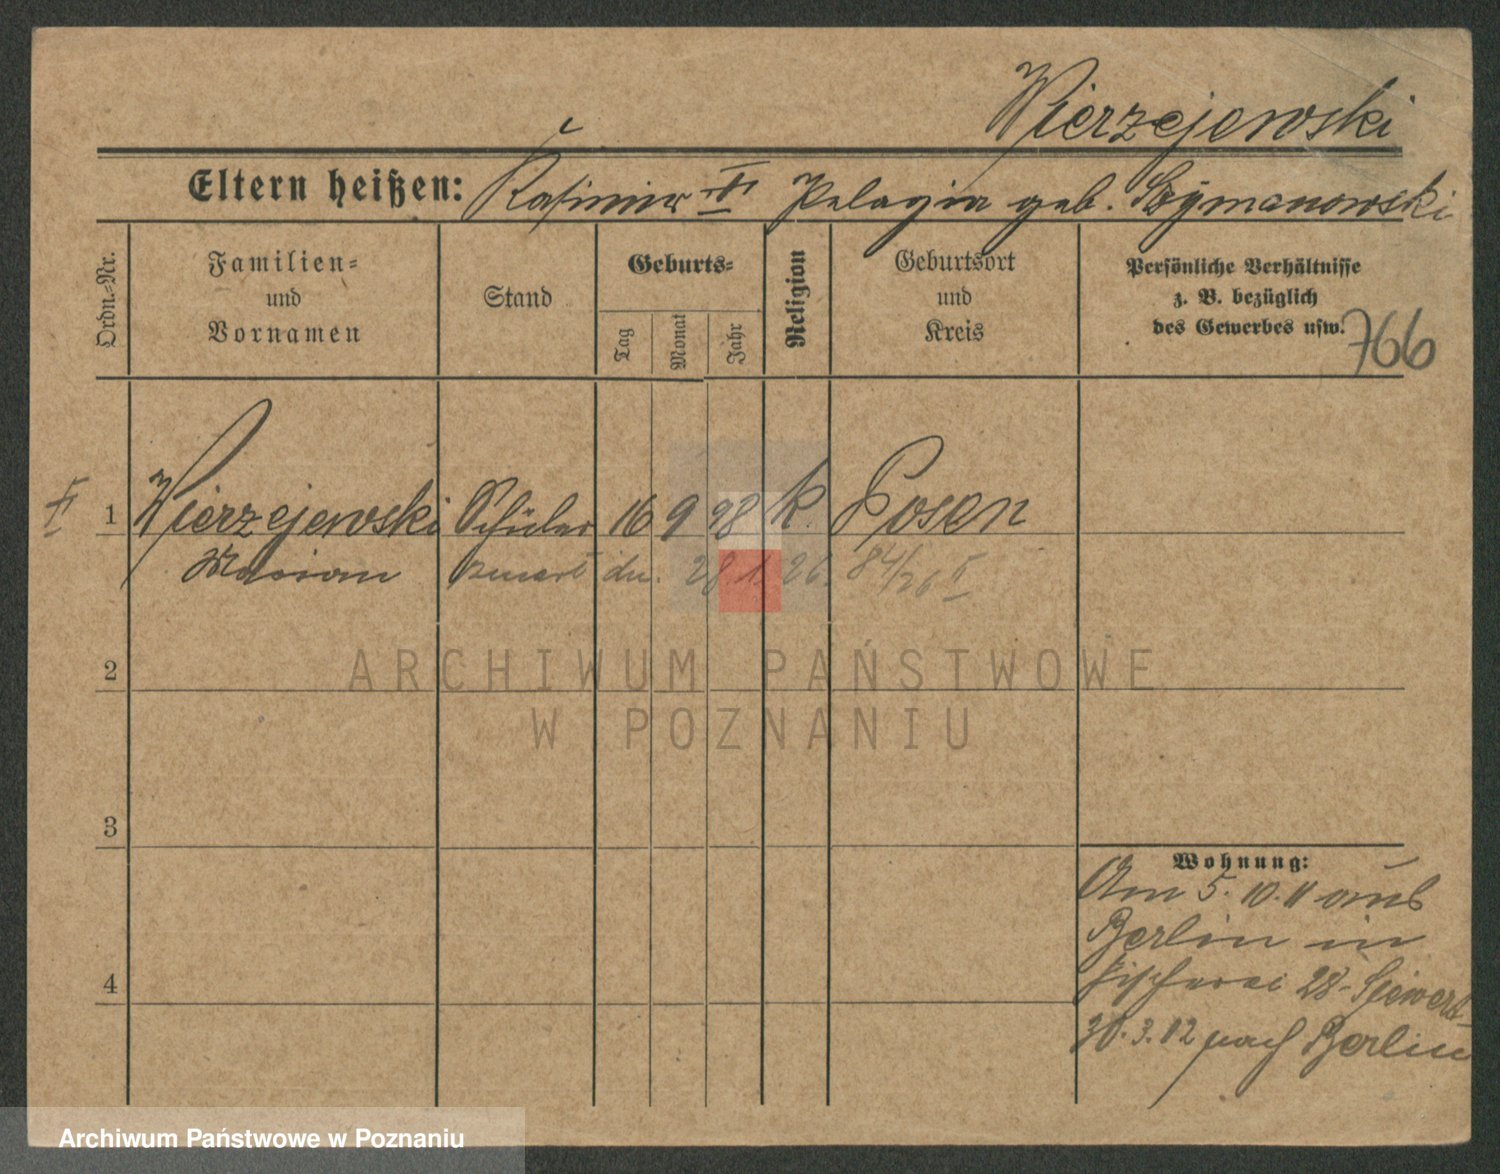 Wierzejewski
Eltern heißen: Kasimir ✝ Pelagia geb. Szymanowski
Ordn.-Nr.
Familien-
und
Vornamen
Stand
Geburts-
Tag
Monat
Jahr
Religion
Geburtsort
und
Kreis
Persönliche Verhältnisse
z. B. bezüglich
des Gewerbes usw.
766
✝ 1 Wierzejewski Schüler 16 9 98 k. Posen
Marian zmarł dn. 28.1.26. 84/26 ✝
2
3
4
Wohnung:
Am 5.10.11 aus
Berlin in
Fischerei 28
30.3.12 nach Berlin
ARCHIWUM PAŃSTWOWE
W POZNANIU
Archiwum Państwowe w Poznaniu